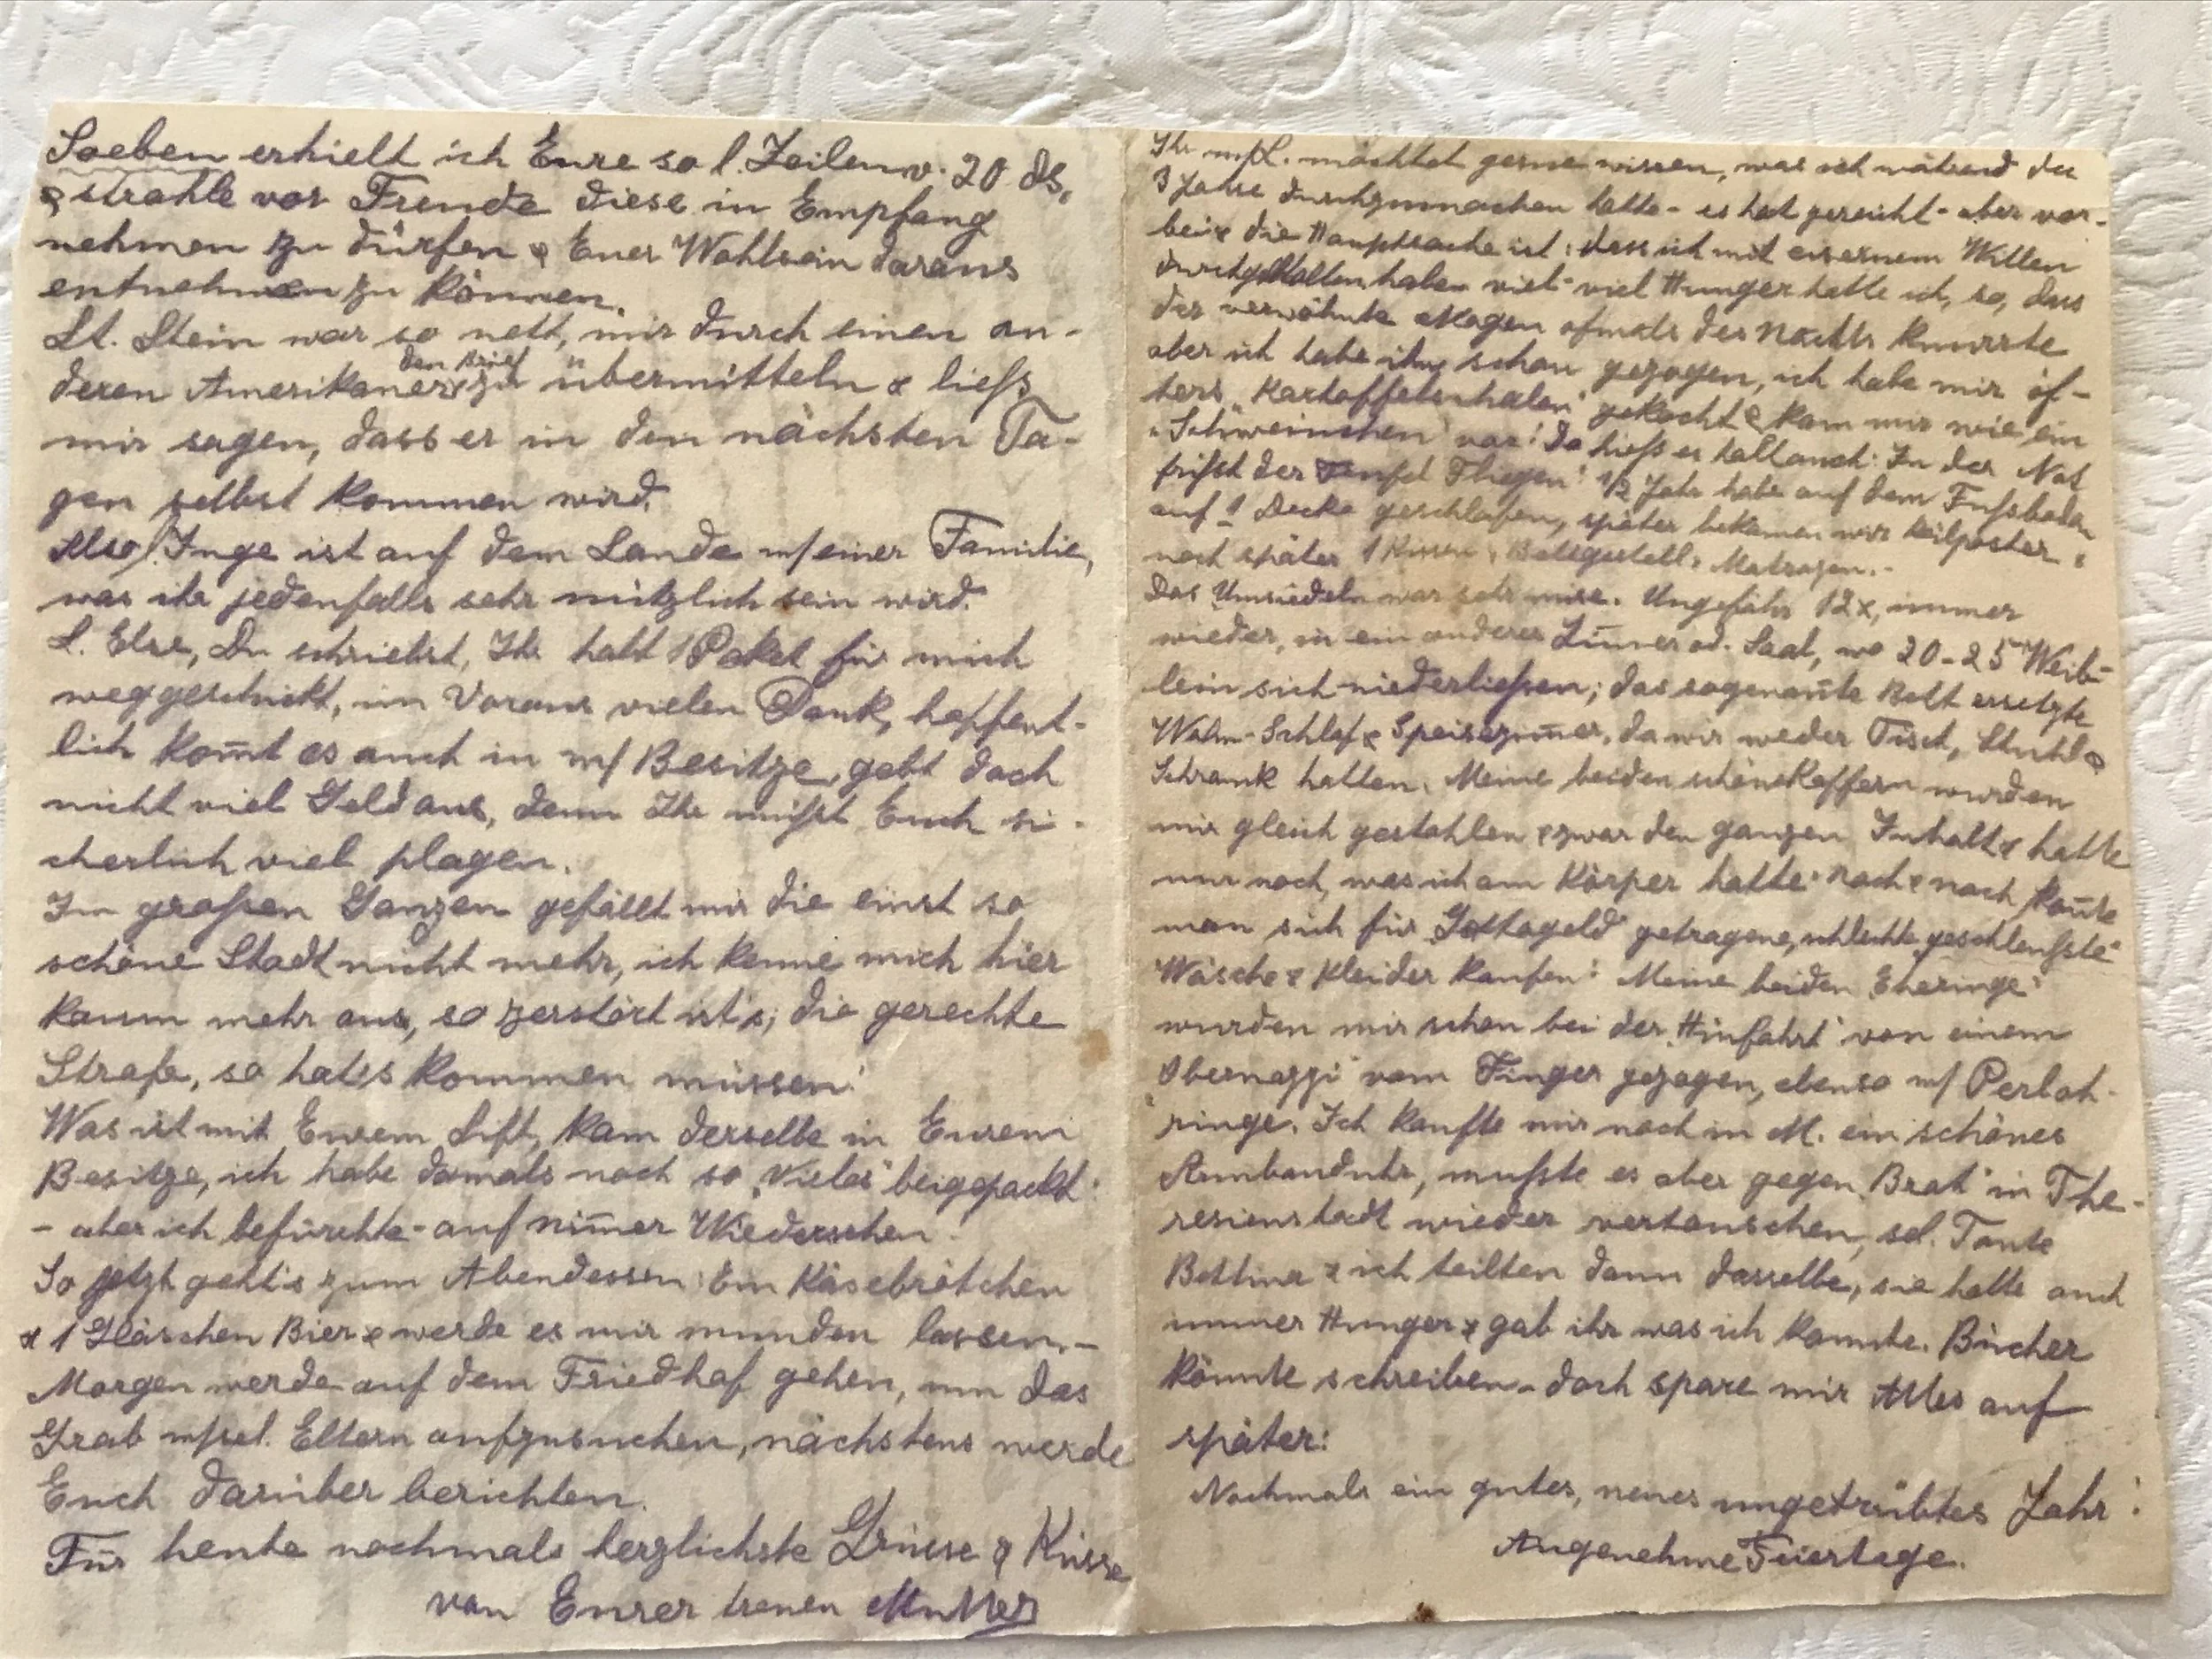 Soeben erhielt ich Eure so l. Zeilen v. 20 ds,
& strahle vor Freude diese in Empfang
nehmen zu dürfen & Euer Wohlsein daraus
entnehmen zu können.
Lt. Stein war so nett, mir durch einen an-
den Brief
deren Amerikaner zu übermitteln & liess
mir sagen, dass er in den nächsten Ta-
gen selbst kommen wird.
Also! Inge ist auf dem Lande m/einer Familie,
was ihr jedenfalls sehr nützlich sein wird.
L. Else, Du schriebst, Ihr habt 1 Paket für mich
weggeschickt, im Voraus vielen Dank, hoffent-
lich kom̄t es auch in m/ Besitze, gebt doch
nicht viel Geld aus, denn Ihr müsst Euch si-
cherlich viel plagen.
Im grossen Ganzen gefällt mir die einst so
schöne Stadt nicht mehr, ich kenne mich hier
kaum mehr aus, so zerstört ist's, die gerechte
Strafe, so hat's kommen müssen!
Was ist mit Eurem Lift, kam derselbe in Eurem
Besitze, ich habe damals noch so "Vieles" beigepackt!
- aber ich befürchte - auf nim̄er Wiedersehen!
So jetzt geht's zum Abendessen: Ein Käsebrötchen
& 1 Gläschen Bier & werde es mir munden lassen.-
Morgen werde auf dem Friedhof gehen, um das
Grab m/sel. Eltern aufzusuchen, nächstens werde
Euch darüber berichten.
Für heute nochmals herzlichste Grüsse & Küsse
von Eurer treuen Mutter
Ihr m/L. möchtet gerne wissen, was ich während der
3 Jahre durchzumachen hatte - es hat gereicht - aber vor-
bei & die Hauptsache ist: dass ich mit eisernem Willen
durchgehalten habe, viel - viel Hunger hatte ich, so, dass
der verwöhnte Magen oftmals des Nachts knurrte
aber ich habe ihn schon gezogen, ich habe mir öf-
ters "Kartoffelschalen" gekocht & kam mir wie ein
"Schweinchen" vor! Da hiess es halt auch: In der Not
frisst der Teufel Fliegen! 1/2 Jahr habe auf dem Fussboden
auf 1 Decke geschlafen, später bekamen wir Keilpolster &
noch später 1 Kissen, Bettgestell, Matrazen.-
Das Umsiedeln war sehr mise. Ungefähr 12x, immer
wieder, in ein anderes Zim̄er od. Saal, wo 20-25 Weib-
lein sich niederliessen; das sogenan̄te Bett ersetzte
Wohn- Schlaf & Speisezim̄er, da wir weder Tisch, Stuhl &
Schrank hatten. Meine beiden schöne Koffern wurden
mir gleich gestohlen & zwar den ganzen Inhalt & hatte
nur noch, was ich am Körper hatte. Nach & nach kon̄te
man sich für "Gettogeld" getragene, schlechte "geschleusste"
Wäsche & Kleider kaufen! Meine beiden "Eheringe"
wurden mir schon bei der "Hinfahrt" von einem
"Obernazzi" vom Finger gezogen, ebenso m/ Perloh-
ringe. Ich kaufte mir noch in M. ein schönes
Armbanduhr, musste es aber gegen "Brot" in The-
resienstadt wieder vertauschen, sel. Tante
Bettina & ich teilten dann dasselbe, sie hatte auch
immer Hunger & gab ihr was ich konnte. Bücher
könnte schreiben - doch spare mir Alles auf
später!
Nochmals ein gutes, neues ungetrübtes Jahr!
Angenehme Feiertage.